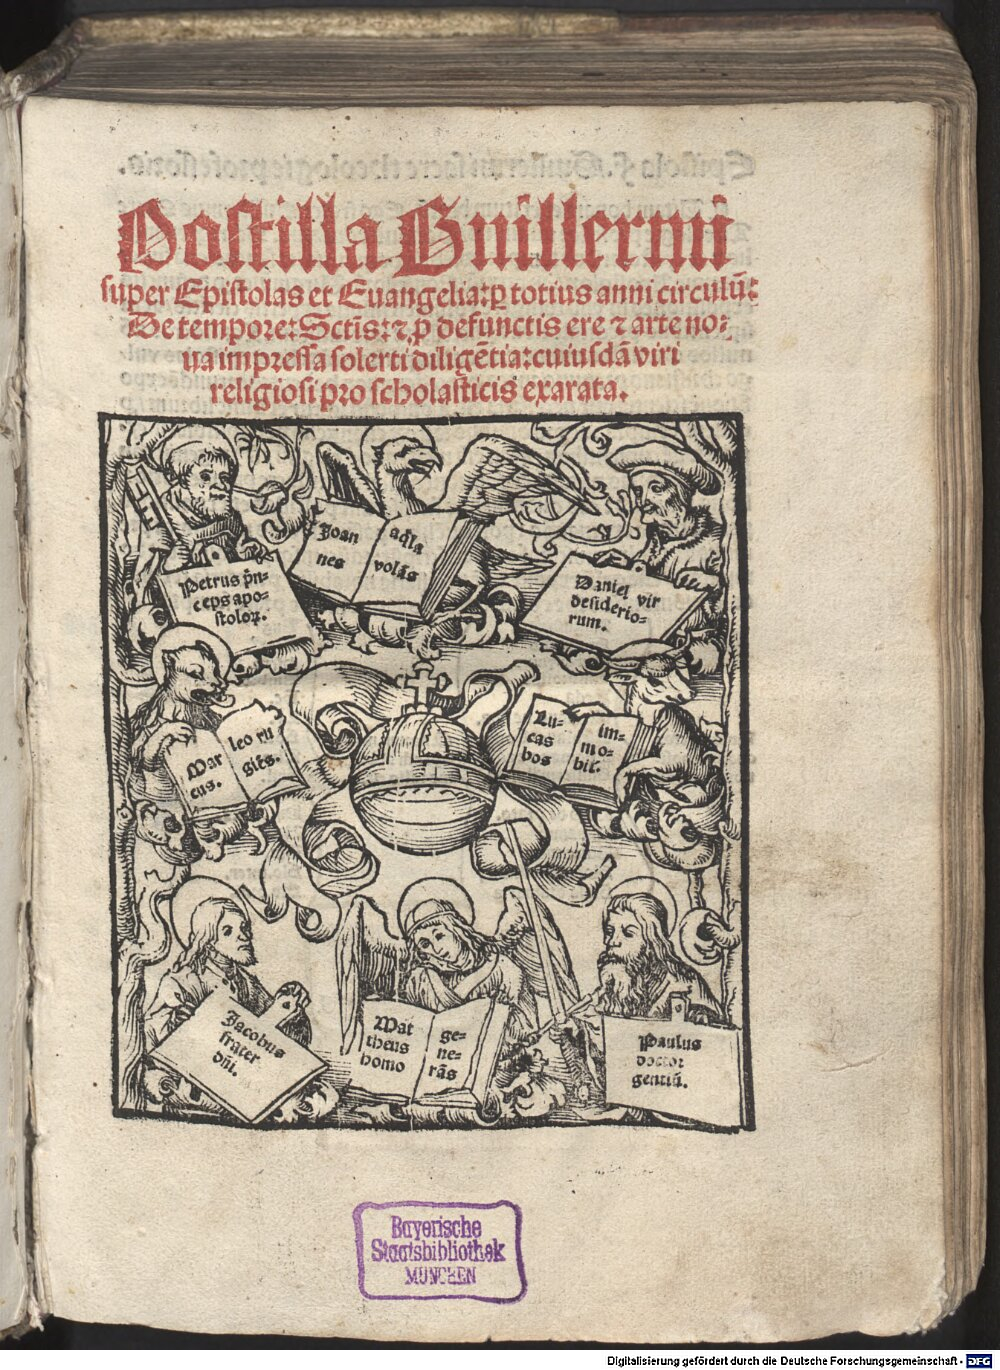 Postilla Guillermi
super Epistolas et Euangelia: ꝑ totius anni circulū:
De tempore: Sctīs: ⁊ ꝓ defunctis ere ⁊ arte no:
ua impressa solerti diligētia: cuiusdā viri
religiosi pro scholasticis exarata.
Petrus prīn
ceps apo-
stoloꝝ.
Joan
nes
aq̄la
volās
Daniel vir
desiderio-
rum.
Mar
cus.
leo ru
giēs.
Lu-
cas
bos
im-
mo-
bil'.
Jacobus
frater
dn̄i.
Mat
theus
homo
ge-
ne-
rās
Paulus
doctor
gentiū.
Bayerische
Staatsbibliothek
MÜNCHEN
Digitalisierung gefördert durch die Deutsche Forschungsgemeinschaft - DFG